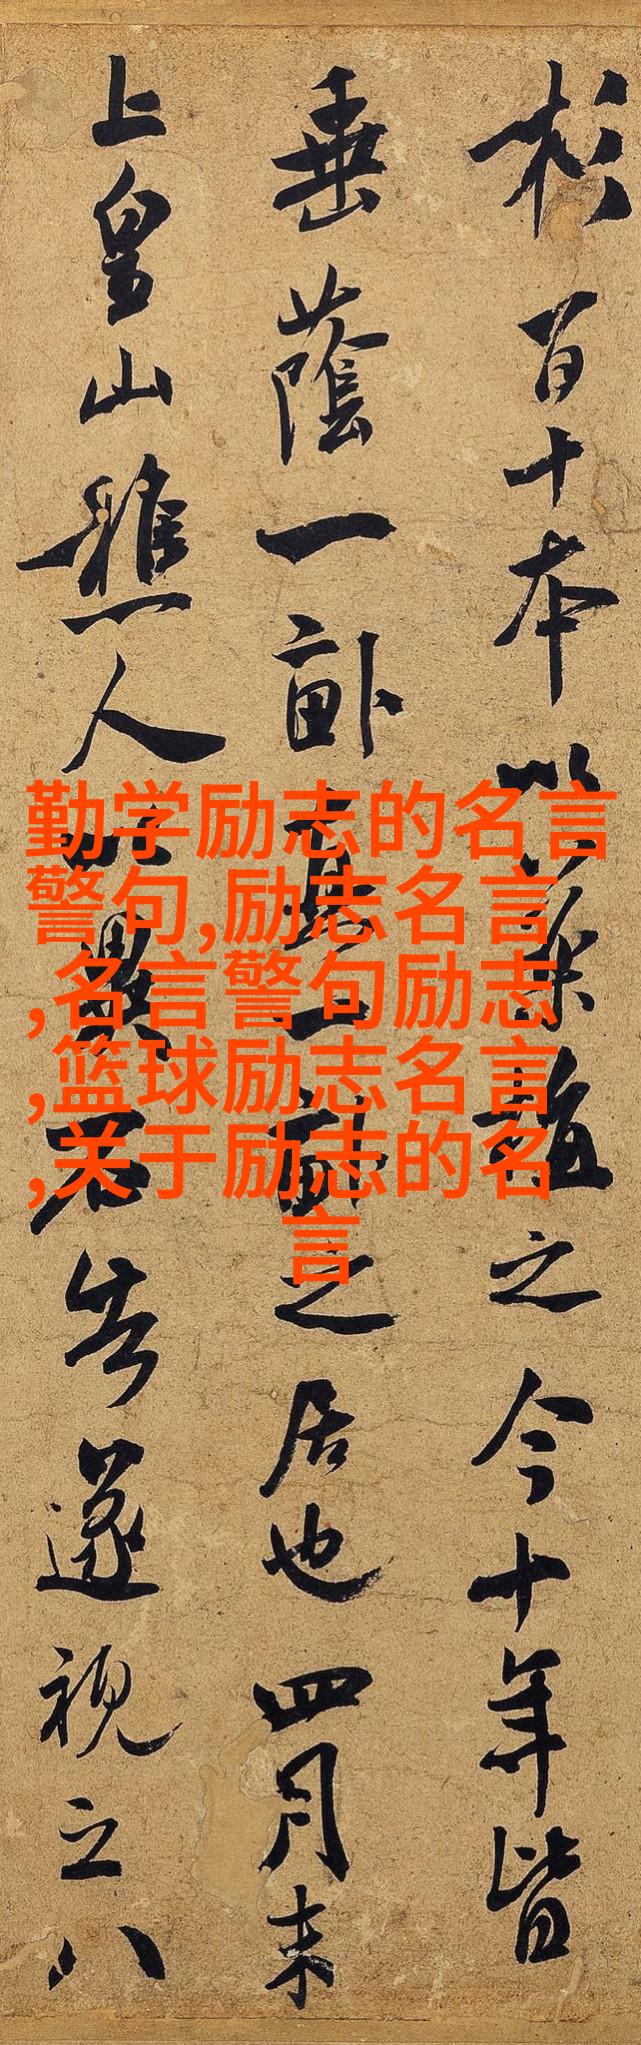 杉百十本以藥植之今十年皆
垂蔭一畝真一畝之居也四月末
上皇山樵人以異石告遂視之八
勤学励志的名言
警句,励志名言
,名言警句励志
,篮球励志名言
,关于励志的名
言